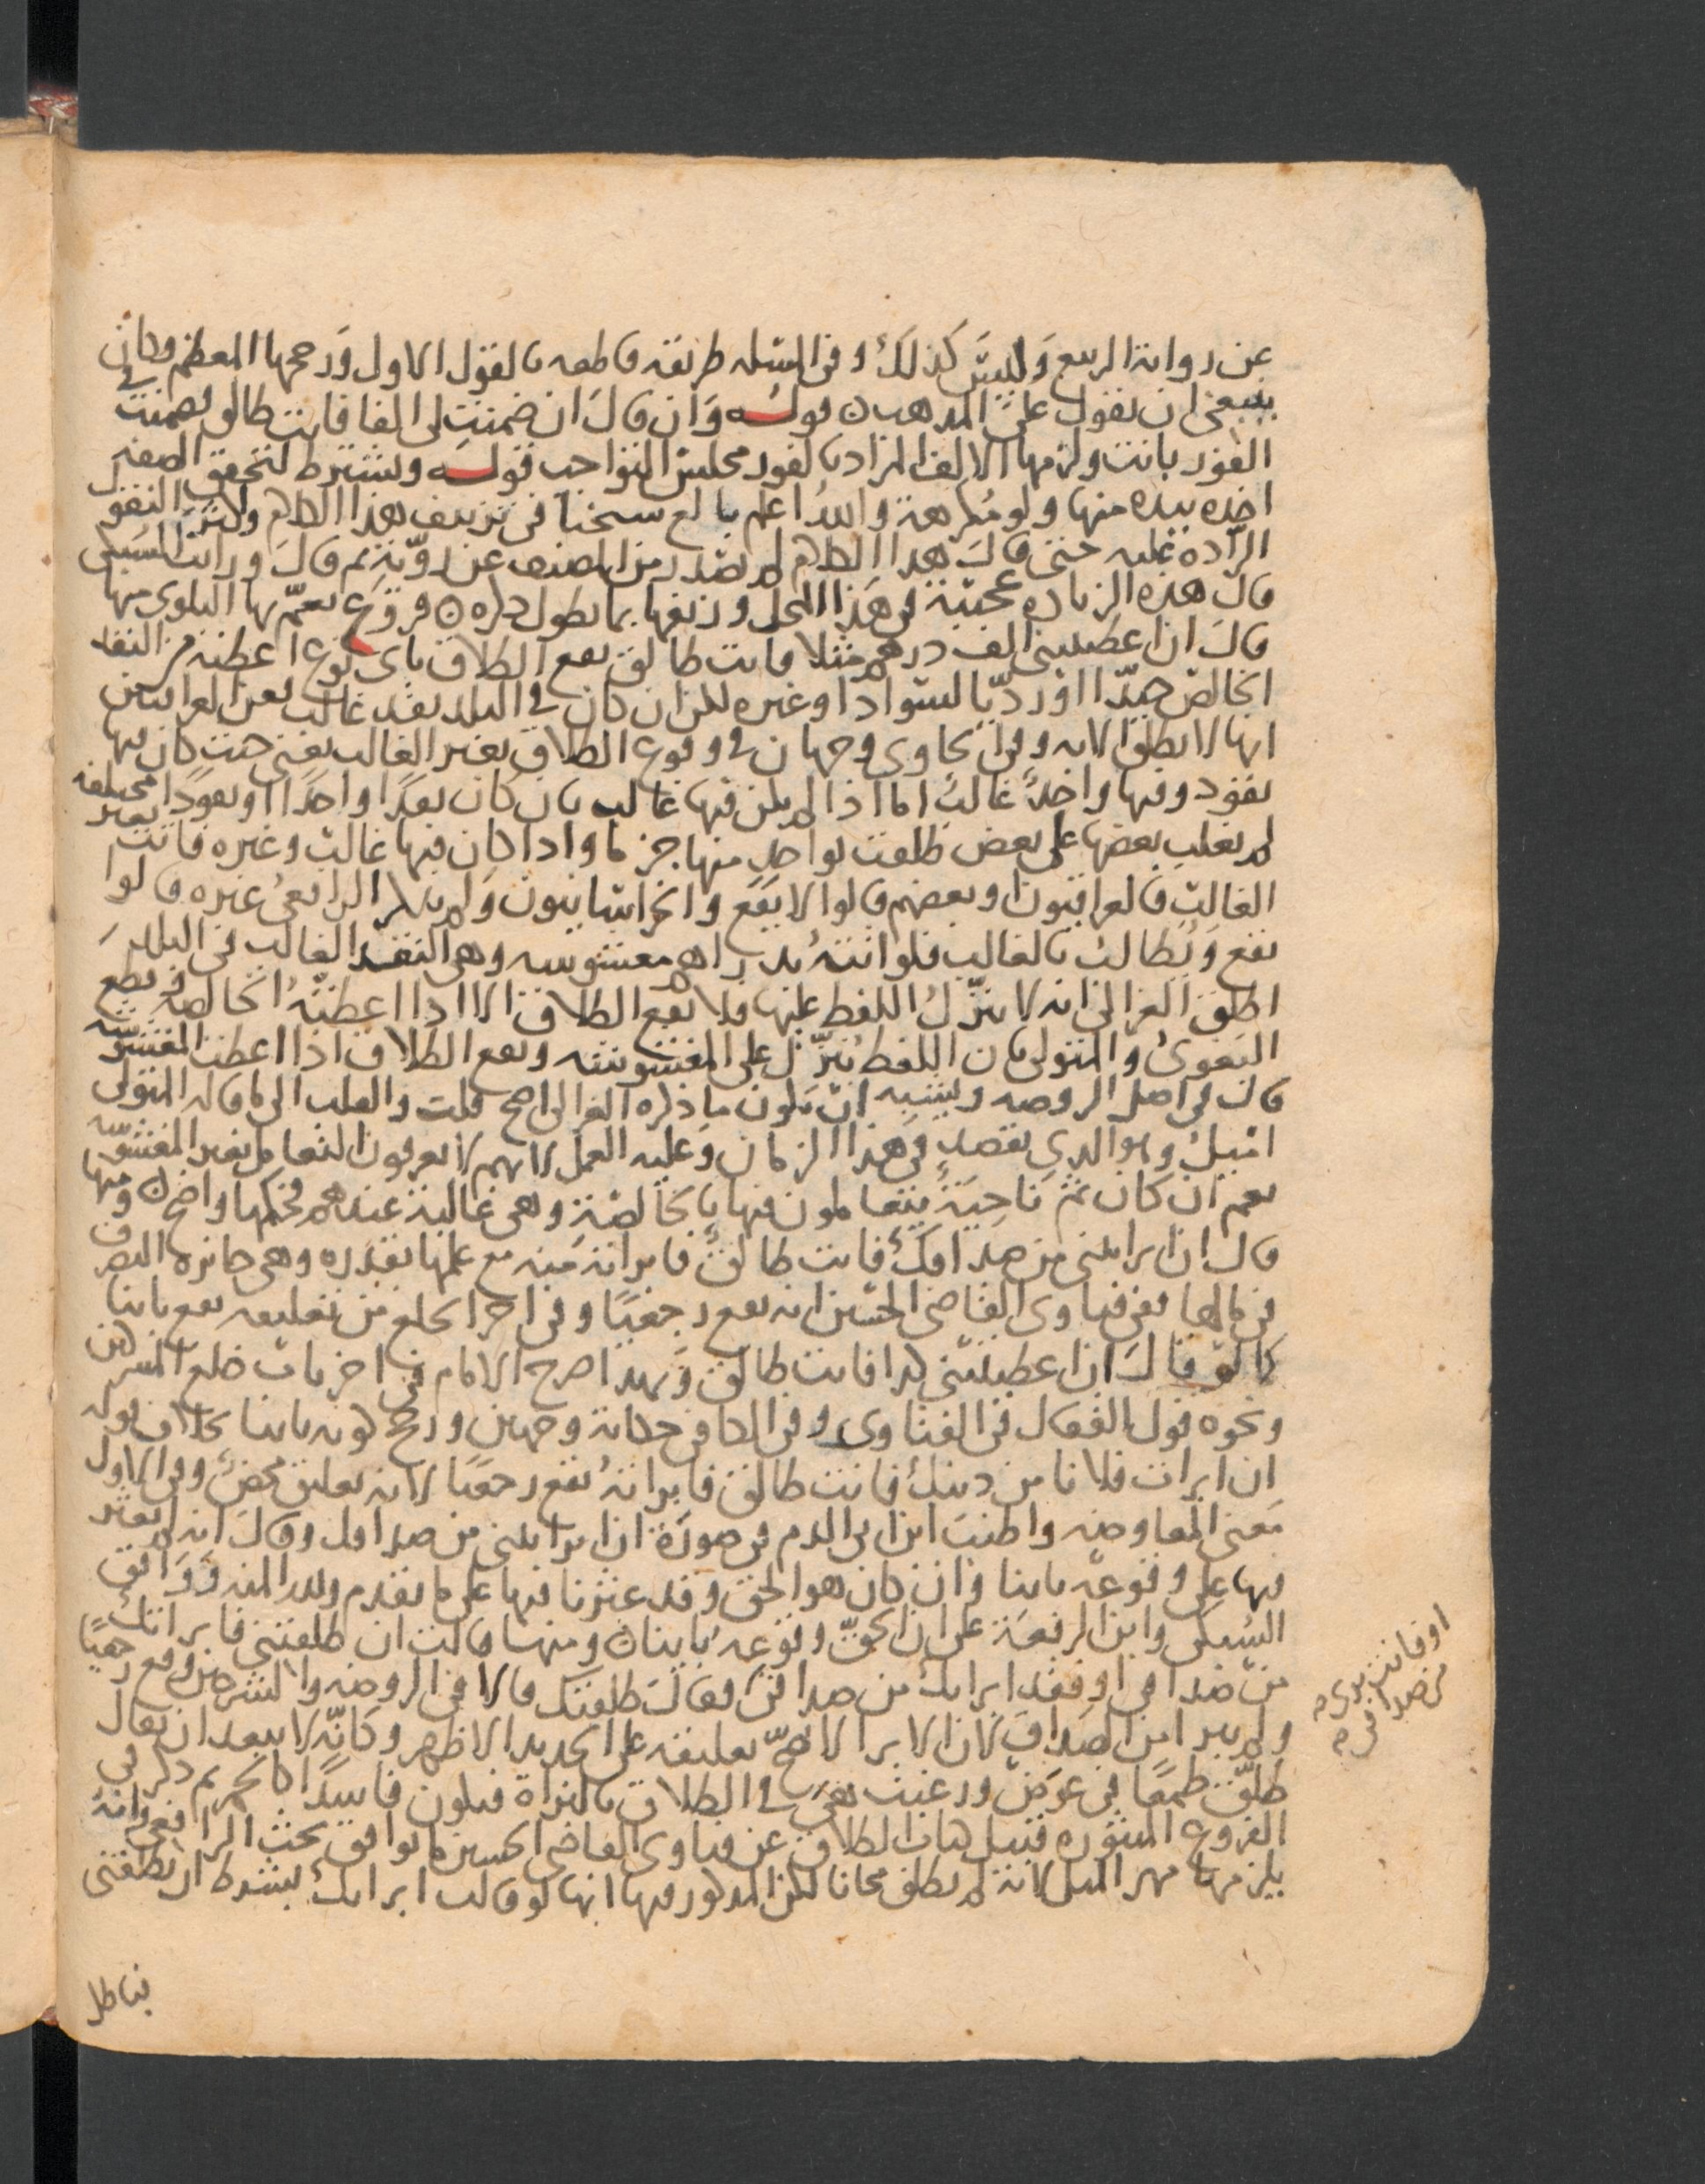 عن رواية الربيع وليس كذلك وفي المسئله طريقة قاطعه بالقول الاول ورجحها المعظم وكان
ينبغي ان يقول على المذهب قوله وان قال ان ضمنت لي الفا فانت طالق فضمنت في
الفور بانت ولزمها الالف المراد بالفور مجلس التواجب قوله ويشترط لتحقق الصفة
اخذه بيده منها ولو مكرهة والله اعلم بالغ شيخنا في تزييف هذا الكلام وكثرة النقول
الرادة عليه حتى قال هذا الكلام لم يصدر من المصنف عن روية ثم قال ورايت السبكي
قال هذه الزيادة عجيبة في هذا المحل وزيفها بما يطول ذكره فروع تعم بها البلوى منها
قال ان اعطيتني الف درهم مثلا فانت طالق يقع الطلاق باي نوع اعطته من النقد
الخالص جيدا او رديا لسواد او غيره لكن ان كان في البلد نقد غالب فعن العراقيين
انها لا تطلق الا به وفي الحاوي وجهان في وقوع الطلاق بغير الغالب يعني حيث كان فيها
نقود وفيها واحد غالب اما اذا لم يكن فيها غالب بان كان نقدا واحدا او نقودا مختلفة
لم يغلب بعضها على بعض طلقت بواحد منها جزما واذا كان فيها غالب وغيره فاتت بغير
الغالب فالعراقيون او بعضهم قالوا لا يقع والخراسانيون ولم يذكر الرافعي غيره قالوا
يقع ويطالب بالغالب فلو اتته بدراهم مغشوشه وهي النقد الغالب في البلد
اطلق الغزالي انه لا ينزل اللفظ عليها فلا يقع الطلاق الا اذا اعطته الخالصة وقطع
البغوي والمتولي بان اللفظ ينزل على المغشوشه ويقع الطلاق اذا اعطت المغشوشه
قال في اصل الروضه ويشبه ان يكون ما ذكره الغزالي اصح قلت والقلب الى ما قاله المتولي
اميل وهو الذي يقصد في هذا الزمان وعليه العمل لانهم لا يعرفون التعامل بغير المغشوشه
نعم ان كان ثم ناحية يتعاملون فيها بالخالصة وهي غالبة عندهم فحكمها واضح ومنها
قال ان ابراتني من صداقك فانت طالق فابراته منه مع علمها بقدره وهي جائزة التصرف
في مالها ففي فتاوى القاضي الحسين انه يقع رجعيا وفي اخر الخلع من تعليقه يقع باينا
كما لو قال ان اعطيتني كذا فانت طالق وبهذا صرح الامام في اخر باب خلع المشركين
ونحوه قول القفال في الفتاوى وفي الكافي حكاية وجهين ورجح كونه باينا بخلاف قوله
ان ابرات فلانا من دينك فانت طالق فابراته يقع رجعيا لانه تعليق محض وفي الاول
معنى المعاوضه واطنب ابن ابي الدم في صورة ان ابراتني من صداقك وقال انه لم يعثر
فيها على وقوعه باينا وان كان هو الحق وقد عثرنا فيها على ما تقدم ولله المنه ووافق
السبكي وابن الرفعة على ان الحق وقوعه باينا ومنها قالت ان طلقتني فابراتك
من صداقي او فقد ابراتك من صداقي فقال طلقتك قالا في الروضه والشرحين وقع رجعيا
ولم يبرا من الصداق لان الابرا لا يصح تعليقه على الجديد الاظهر وكانه لا يبعد ان يقال
طلق طمعا في عوض ورغبت هي في الطلاق بالبراة فيكون فاسدا كالخمر ثم ذكر في
الفروع المنثورة قبيل كتاب الطلاق عن فتاوى القاضي الحسين ما يوافق بحث الرافعي وانه
يلزمها مهر المثل لانه لم يطلق مجانا لكن المذكور فيها انها لو قالت ابراتك بشرط ان تطلقني
او فانت بريء
من صداقي
باطل